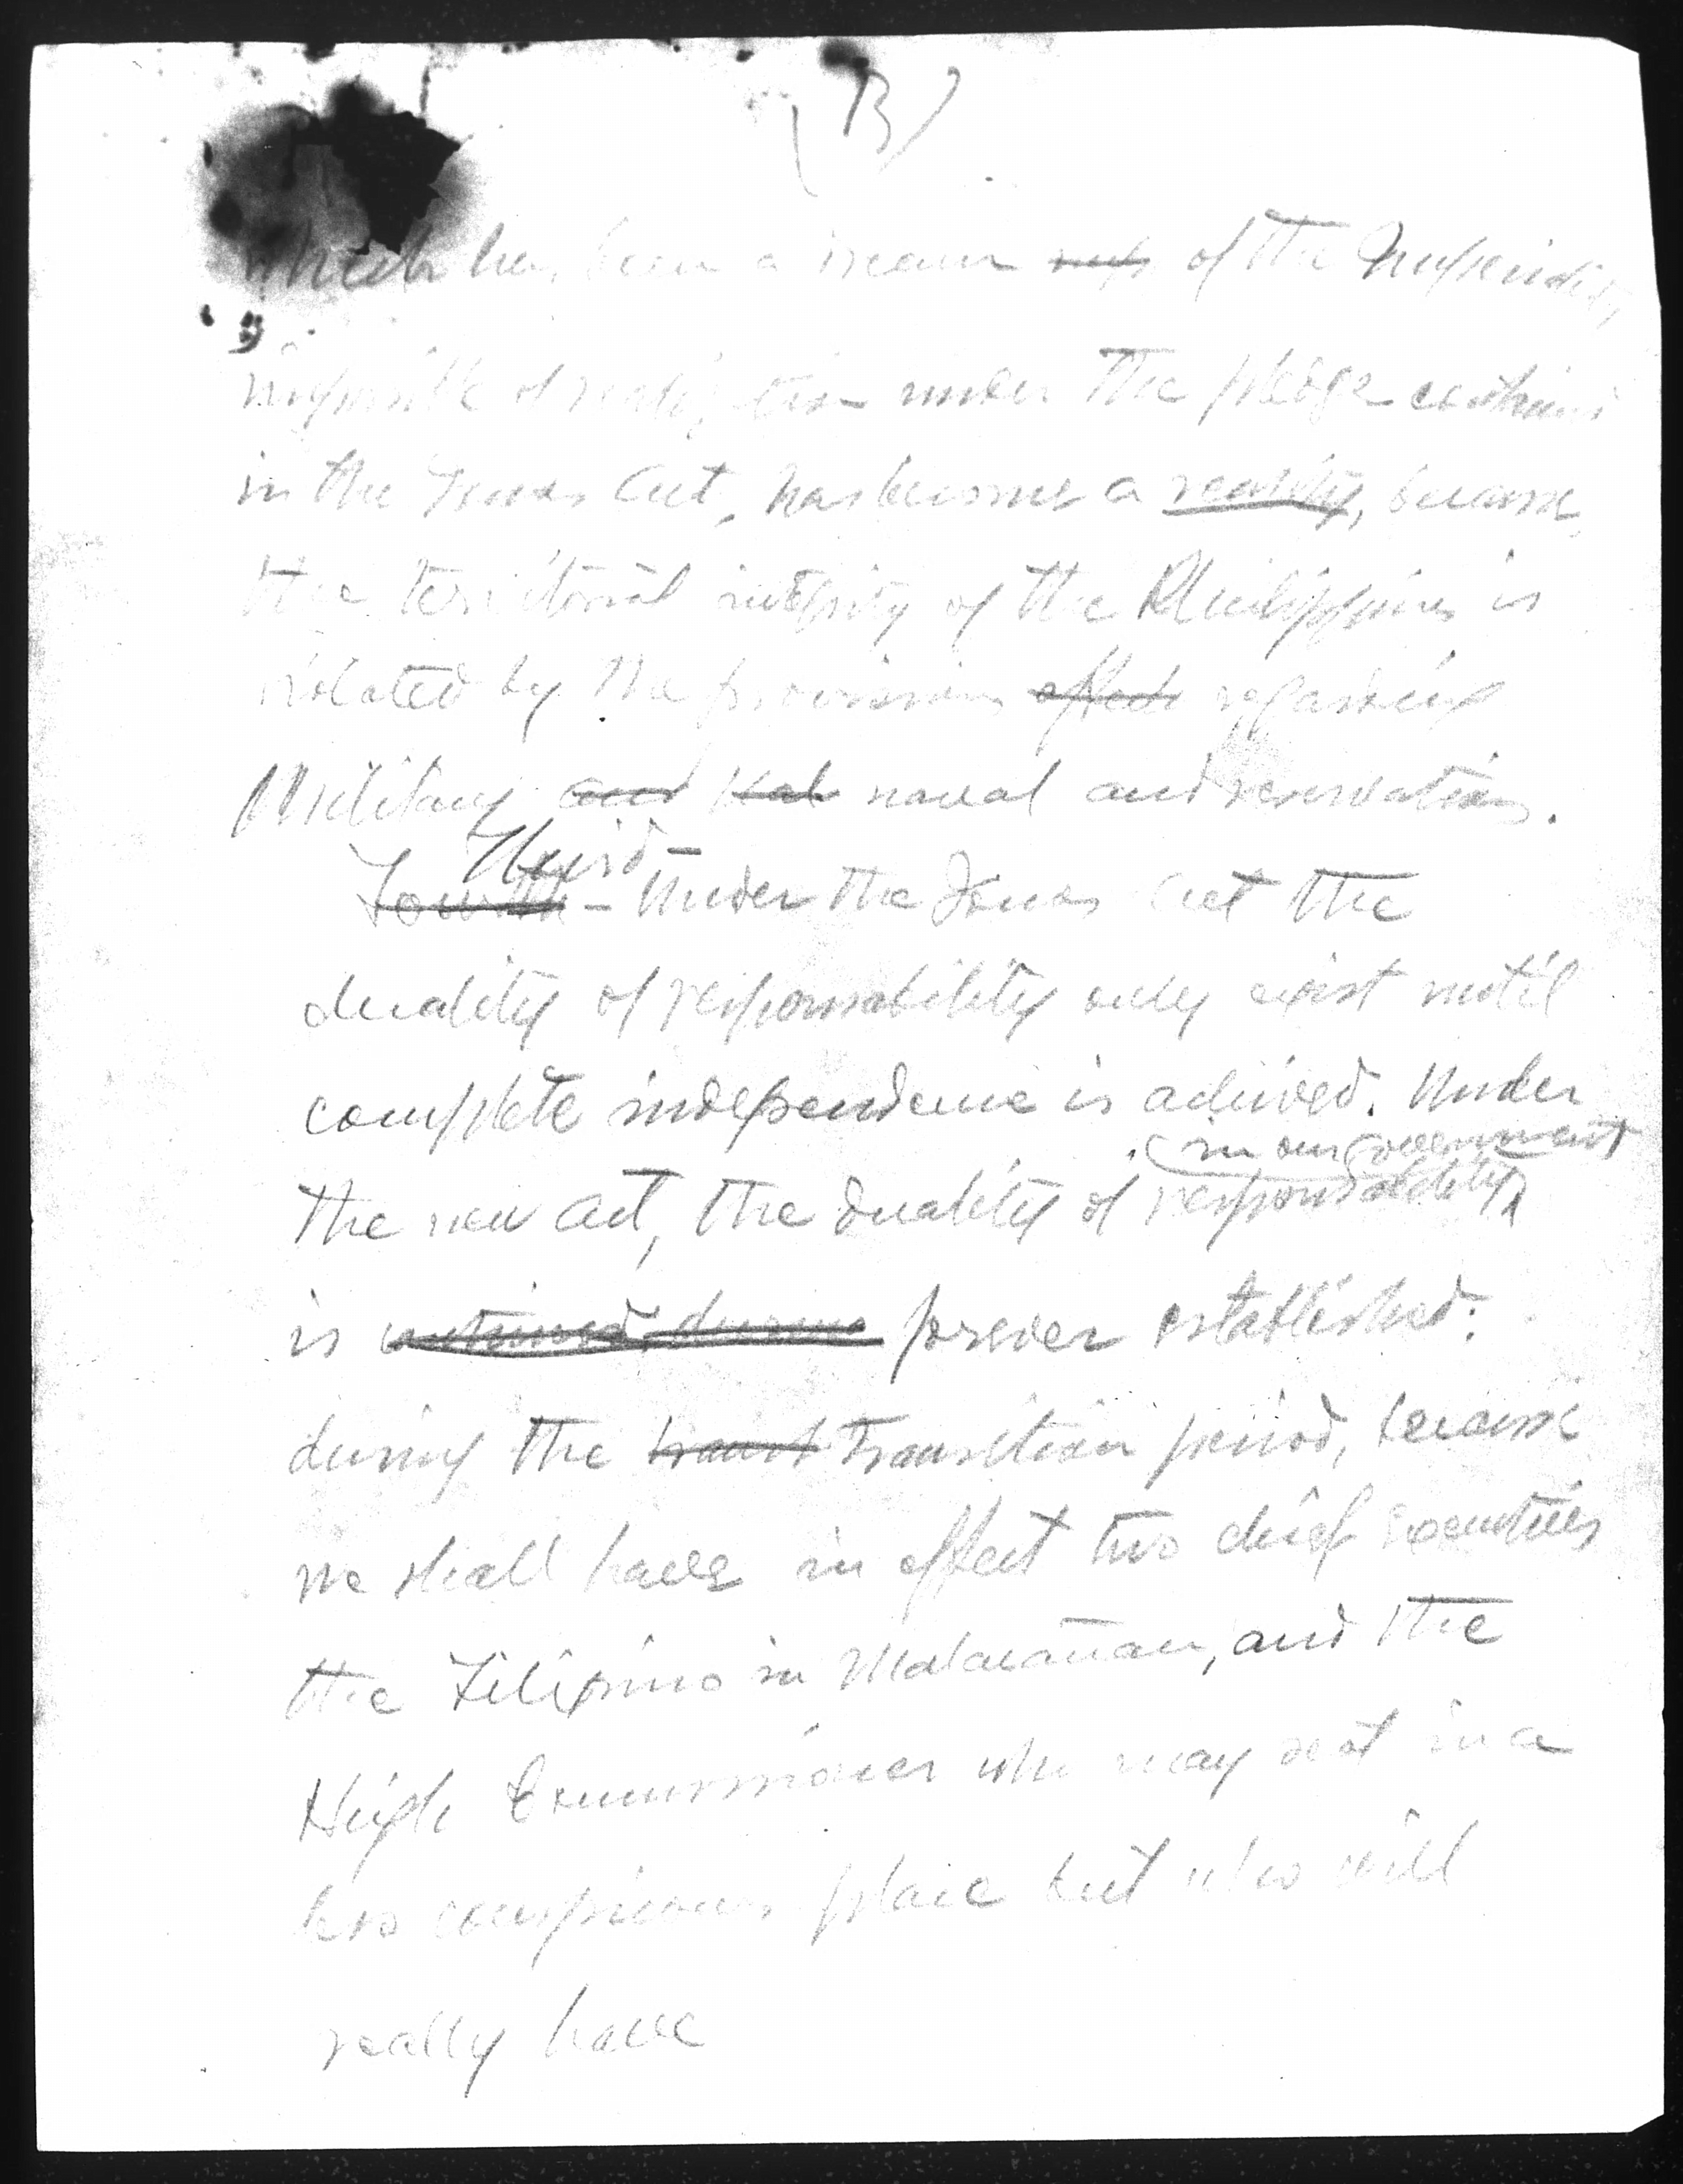 (3)
which has been a dream of the
impossible of realization under the pledge contained
in the Jones Act, has become a reality, because
the territorial integrity of the Philippines is
violated by the provisions regarding
Military and naval and reservations.
Third -
Fourth - Under the Jones Act the
duality of responsability only exist until
complete independence is achived. Under
in our Government
the new Act, the duality of responsability
is continued during forever established:
during the transit transition period, because
we shall have in effect two chief executives
the Filipino in Malacañan, and the
High Commissioner who may seat in a
less conspicuous place but who will
really have